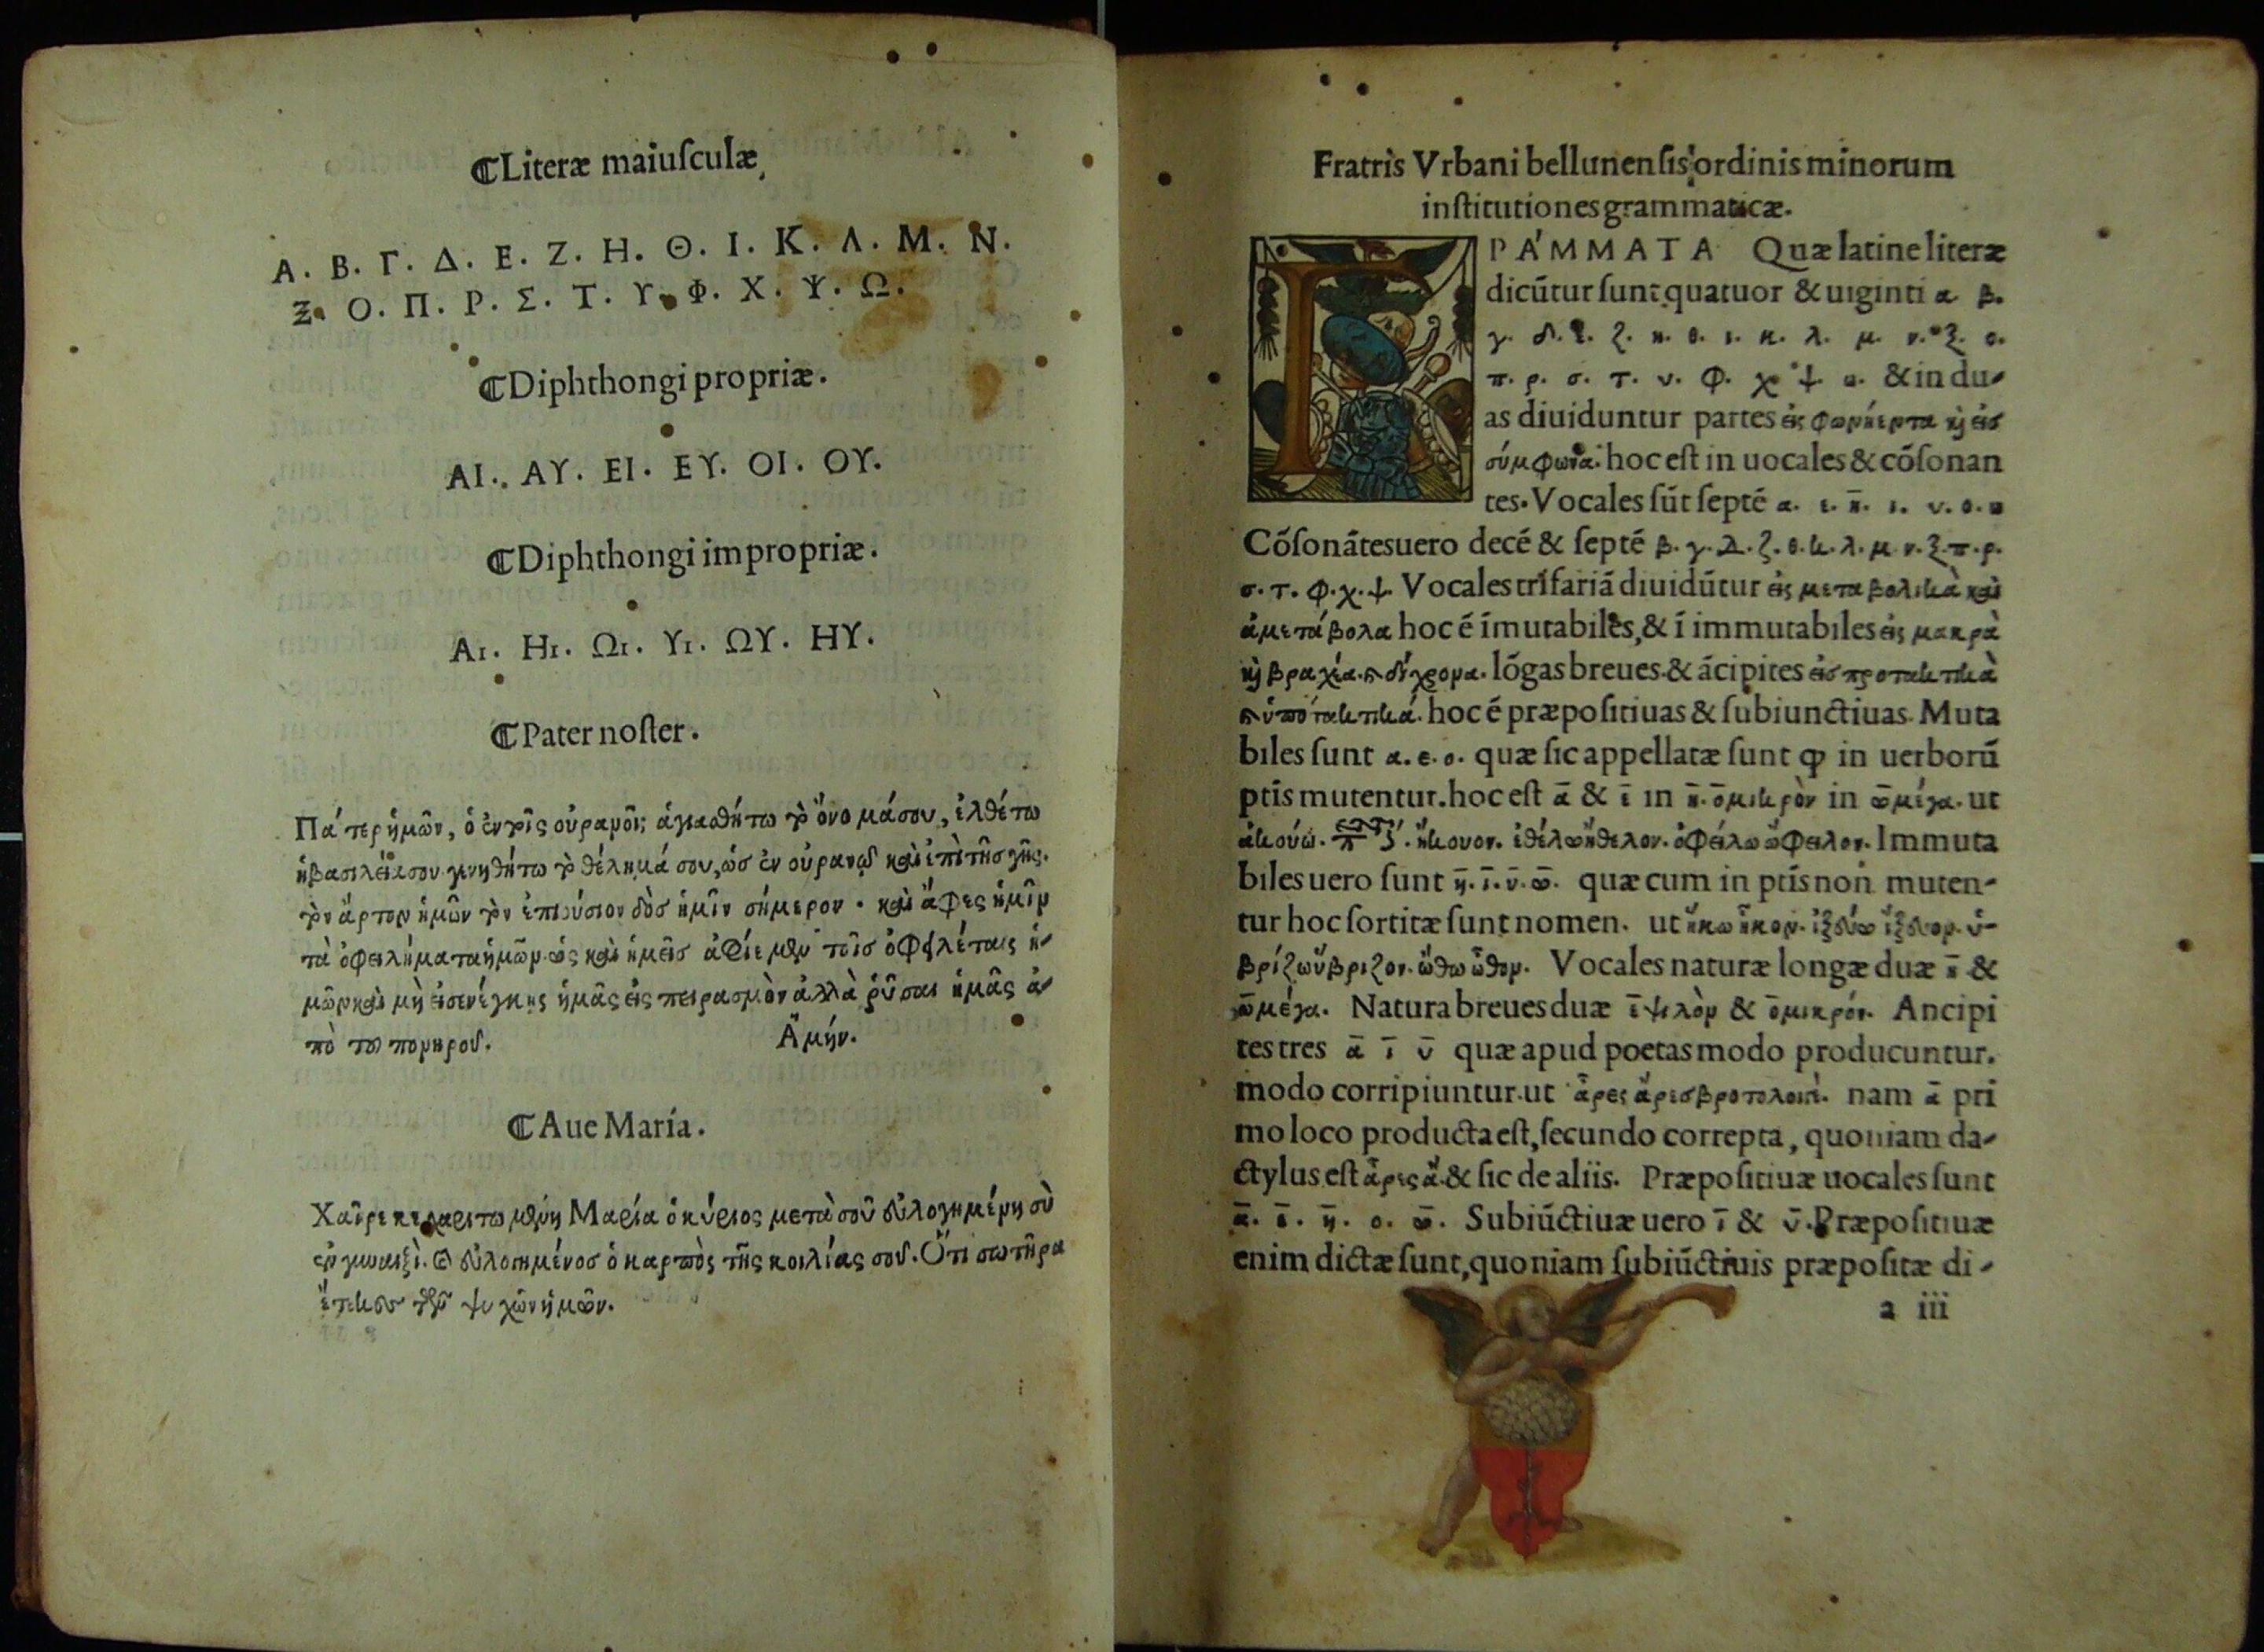 ¶Literæ maiuſculæ
Α. Β. Γ. Δ. Ε. Ζ. Η. Θ. Ι. Κ. Λ. Μ. Ν.
Ξ. Ο. Π. Ρ. Σ. Τ. Υ. Φ. Χ. Ψ. Ω.
¶Diphthongi propriæ.
ΑΙ. ΑΥ. ΕΙ. ΕΥ. ΟΙ. ΟΥ.
¶Diphthongi impropriæ.
Αι. Ηι. Ωι. Υι. ΩΥ. ΗΥ.
¶Pater noſter.
Πάτερ ἡμῶν, ὁ ἐν τοῖς οὐρανοῖς ἁγιασθήτω τὸ ὄνομά σου, ἐλθέτω
ἡ βασιλεία σου. γενηθήτω τὸ θέλημά σου, ὡσ ἐν οὐρανῷ καὶ ἐπὶ τῆσ γῆς.
τὸν ἄρτον ἡμῶν τὸν ἐπιούσιον δὸσ ἡμῖν σήμερον. καὶ ἄφες ἡμῖν
τὰ ὀφειλήματα ἡμῶν. ὡς καὶ ἡμεῖσ ἀφίεμεν τοῖσ ὀφειλέταις ἡ-
μῶν καὶ μὴ εἰσενέγκης ἡμᾶς εἰς πειρασμὸν ἀλλὰ ῥῦσαι ἡμᾶς ἀ-
πὸ τοῦ πονηροῦ. Ἀμήν.
¶Aue María.
Χαῖρε κεχαριτωμένη Μαρία ὁ κύριος μετὰ σοῦ εὐλογημένη σὺ
ἐν γυναιξὶ. καὶ εὐλογημένοσ ὁ καρπὸς τῆς κοιλίας σοῦ. Ὅτι σωτῆρα
ἔτεκες τῶν ψυχῶν ἡμῶν.
Fratris Vrbani bellunenſis ordinis minorum
inſtitutiones grammaticæ.
ΓΡΑ´ΜΜΑΤΑ Quæ latine literæ
dicūtur ſunt quatuor & uiginti α. β.
γ. δ. ε. ζ. η. θ. ι. κ. λ. μ. ν. ξ. ο.
π. ρ. σ. τ. υ. φ. χ. ψ. ω. & in du-
as diuiduntur partes εἰς φωνήεντα καὶ εἰσ
σύμφωνα. hoc eſt in uocales & cōſonan
tes. Vocales ſūt ſeptē α. ε. η̄. ι. υ. ο. ω
Cōſonātes uero decē & ſeptē β. γ. δ. ζ. θ. κ. λ. μ. ν. ξ. π. ρ.
σ. τ. φ. χ. ψ. Vocales trifariā diuidūtur εἰς μεταβολικὰ καὶ
ἀμετάβολα hoc ē ī mutabiles, & ī immutabiles εἰς μακρὰ
καὶ βραχέα. καὶ δίχρονα. lōgas breues & ācipites εἰσ προτακτικὰ
καὶ ὑποτακτικά. hoc ē præpoſitiuas & ſubiunctiuas. Muta
biles ſunt α. ε. ο. quæ ſic appellatæ ſunt ꝙ in uerborū
ptīs mutentur. hoc eſt ᾱ & ε̄ in η̄. ο̄μικρὸν in ω̄μέγα. ut
ἀκούω. ἤκουον. ἐθέλω ἤθελον. ὀφείλω ὤφειλον. Immuta
biles uero ſunt η̄. ῑ. ῡ. ω̄. quæ cum in ptīs non muten-
tur hoc ſortitæ ſunt nomen. ut ἥκω ἧκον. ἰξεύω ἴξευον. ὑ-
βρίζω ὕβριζον. ὤθω ὦθον. Vocales naturæ longæ duæ η̄ &
ω̄μέγα. Natura breues duæ ε̄ψιλὸν & ο̄μικρόν. Ancipi
tes tres ᾱ ῑ ῡ quæ apud poetas modo producuntur.
modo corripiuntur. ut ἆρες ἄρεσ βροτολοιγὲ. nam ᾱ pri
mo loco producta eſt, ſecundo correpta, quoniam da-
ctylus eſt ἆρες ἄ. & ſic de aliis. Præpoſitiuæ uocales ſunt
ᾱ. ε̄. η̄. ο. ω̄. Subiūctiuæ uero ῑ & ῡ. Præpoſitiuæ
enim dictæ ſunt, quoniam ſubiūctiuis præpoſitæ di-
a iii